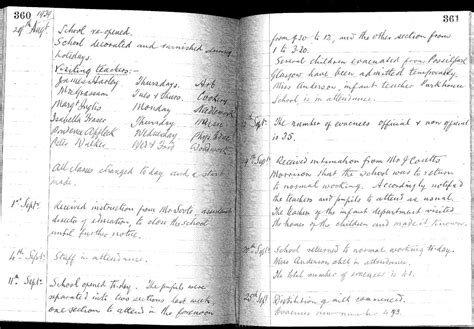 360
29th Augt. School re-opened.
School decorated and furnished during
holidays.
Visiting teachers:-
James Hardy Thursdays. Art
Tues & Thurs. Cookery
Margt Monday Needlework
Isabella Fraser Thursday Music
Prudence Affleck Wednesday Phys. Exer.
Peter Walker. Wed & Frid Woodwork
All classes changed to day and a start
made.
1st Septr. Received instruction from Mr assistant
director of education, to close the school
until further notice.
4th Septr. Staff in attendance.
11th Septr. School opened to-day. The pupils were
separated into two sections last week,
one section to attend in the forenoon
361
from 9.30 to 12, and the other section from
1 to 3.30.
Several children evacuated from Possilpark
Glasgow have been admitted temporarily.
Miss Anderson, infant teacher Parkhouse
School is in attendance.
Septr. The number of evacuees official & non official
is 35.
Septr. Received information from Mr J
Morrison that the school was to return
to normal working. Accordingly notified
the teachers and pupils to attend as usual.
The teacher of the infant department visited
the homes of the children and made it known.
Septr. School returned to normal working to day.
Miss Anderson still in attendance.
The total number of evacuees is 41.
25th Sept Distribution of milk commenced.
Evacuees now number 43.